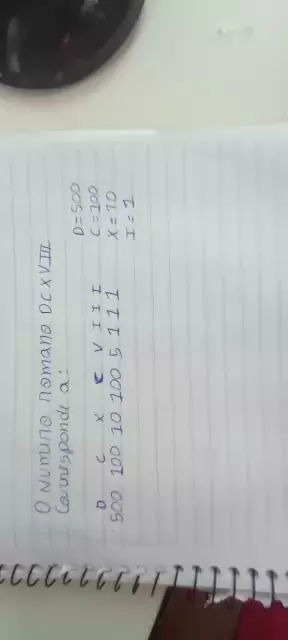 O Numero romano DCXVIII
Corresponde a:
D=500
C=100
X=10
I=1
D C X C V I I I
500 100 10 100 5 1 1 1